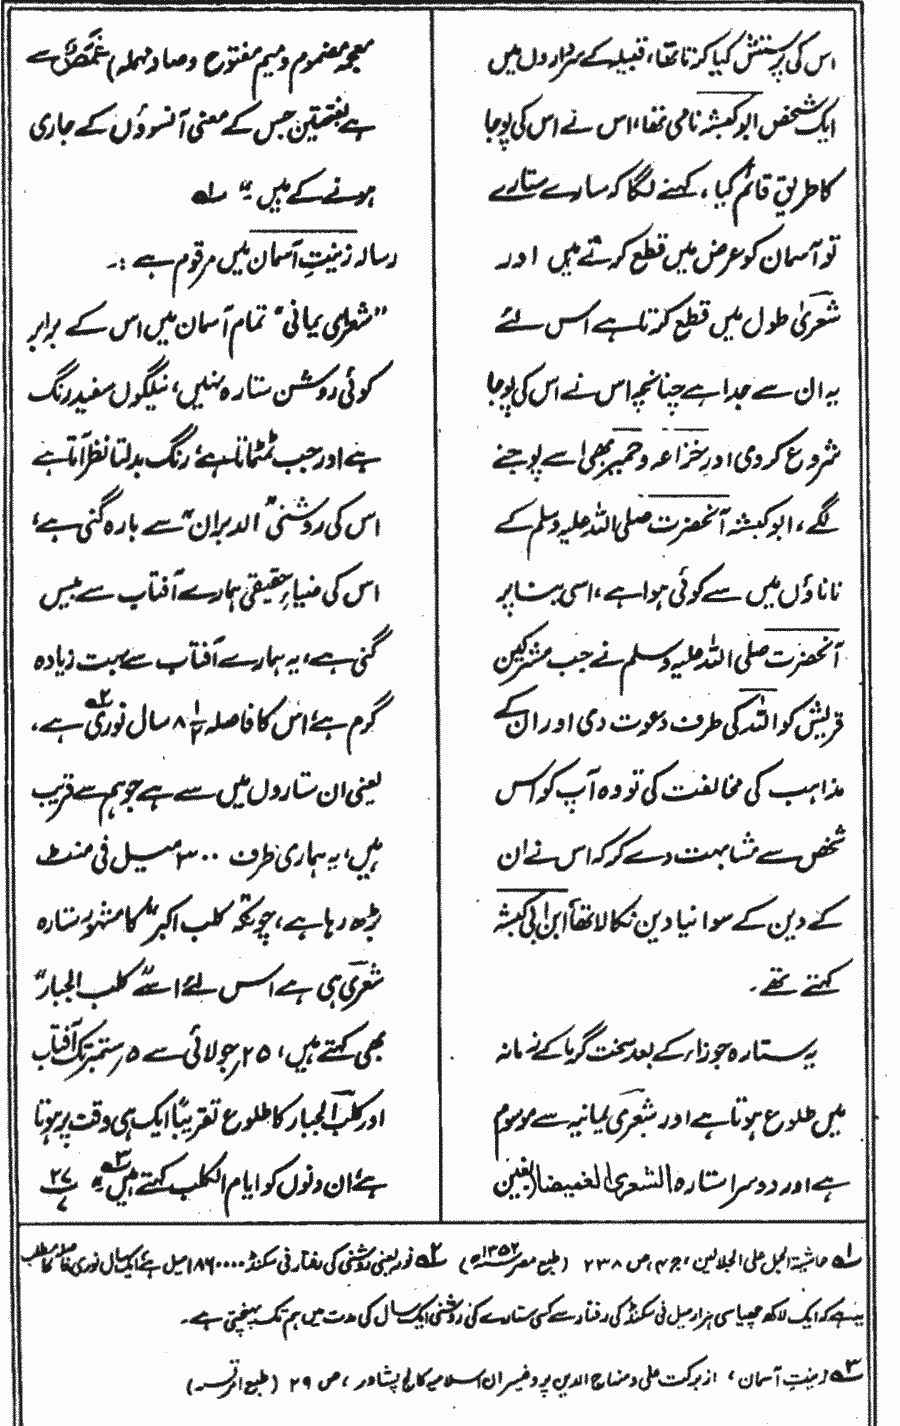 اس کی پرستش کیا کرتا تھا، قبیلہ کے سرداروں میں
ایک شخص ابو کبشہ نامی تھا، اس نے اس کی پوجا
کا طریق قائم کیا، کہنے لگا کہ سارے ستارے
تو آسمان کو عرض میں قطع کرتے ہیں اور
شعریٰ طول میں قطع کرتا ہے اس لئے
یہ ان سے جدا ہے چنانچہ اس نے اس کی پوجا
شروع کر دی اور خزاعہ و حمیر بھی اسے پوجنے
لگے، ابو کبشہ آنحضرت صلی اللہ علیہ وسلم کے
ناناؤں میں سے کوئی ہوا ہے، اسی بنا پر
آنحضرت صلی اللہ علیہ وسلم نے جب مشرکین
قریش کو اللہ کی طرف دعوت دی اور ان کے
مذاہب کی مخالفت کی تو وہ آپ کو اس
شخص سے مشابہت دے کر کہ اس نے ان
کے دین کے سوا نیا دین نکالا تھا ابن ابی کبشہ
کہتے تھے۔
یہ ستارہ جوزاء کے بعد سخت گرما کے زمانہ
میں طلوع ہوتا ہے اور شعریٰ یمانیہ سے موسوم
ہے اور دوسرا ستارہ الشعریٰ الغمیصا (بفین
معجمہ مضموم و میم مفتوح و صاد مہملہ) غمص سے
ہے بفتحتین جس کے معنی آنسوؤں کے جاری
ہونے کے ہیں" ۱ھ
رسالہ زینتِ آسمان میں مرقوم ہے :-
"شعرای یمانی" تمام آسمان میں اس کے برابر
کوئی روشن ستارہ نہیں، نیلگوں سفید رنگ
ہے اور جب ٹمٹماتا ہے رنگ بدلتا نظر آتا ہے
اس کی روشنی "الدبران" سے بارہ گنی ہے،
اس کی ضیاءِ حقیقی ہمارے آفتاب سے بیس
گنی ہے، یہ ہمارے آفتاب سے بہت زیادہ
گرم ہے، اس کا فاصلہ ۸ ۱/۲ سال نوری ۲ھ ہے،
یعنی ان ستاروں میں سے ہے جو ہم سے قریب
ہیں، یہ ہماری طرف ۳۰۰ میل فی منٹ
بڑھ رہا ہے، چونکہ "کلب اکبر" کا مشہور ستارہ
شعریٰ ہی ہے اس لئے اسے "کلب الجبار"
بھی کہتے ہیں، ۲۵ جولائی سے ۵ ستمبر تک آفتاب
اور کلب الجبار کا طلوع تقریباً ایک ہی وقت پر ہوتا
ہے، ان دنوں کو ایام الکلب کہتے ہیں" ۳ھ ۲۷
۱ھ حاشیۃ الجمل علی الجلالین، ج ۴، ص ۲۳۸ (طبع مصر ۱۳۵۲ھ) ۲ھ نور یعنی روشنی کی رفتار فی سکنڈ ۱۸۶۰۰۰۰ میل ہے، ایک سال نوری فاصلہ کا مطلب
یہ ہے کہ ایک لاکھ چھیاسی ہزار میل فی سکنڈ کی رفتار سے کسی ستارے کی روشنی ایک سال کی مدت میں ہم تک پہنچتی ہے۔
۳ھ زینتِ آسمان، از برکت علی و منہاج الدین پروفیسران اسلامیہ کالج پشاور، ص ۲۹ (طبع امرتسر)